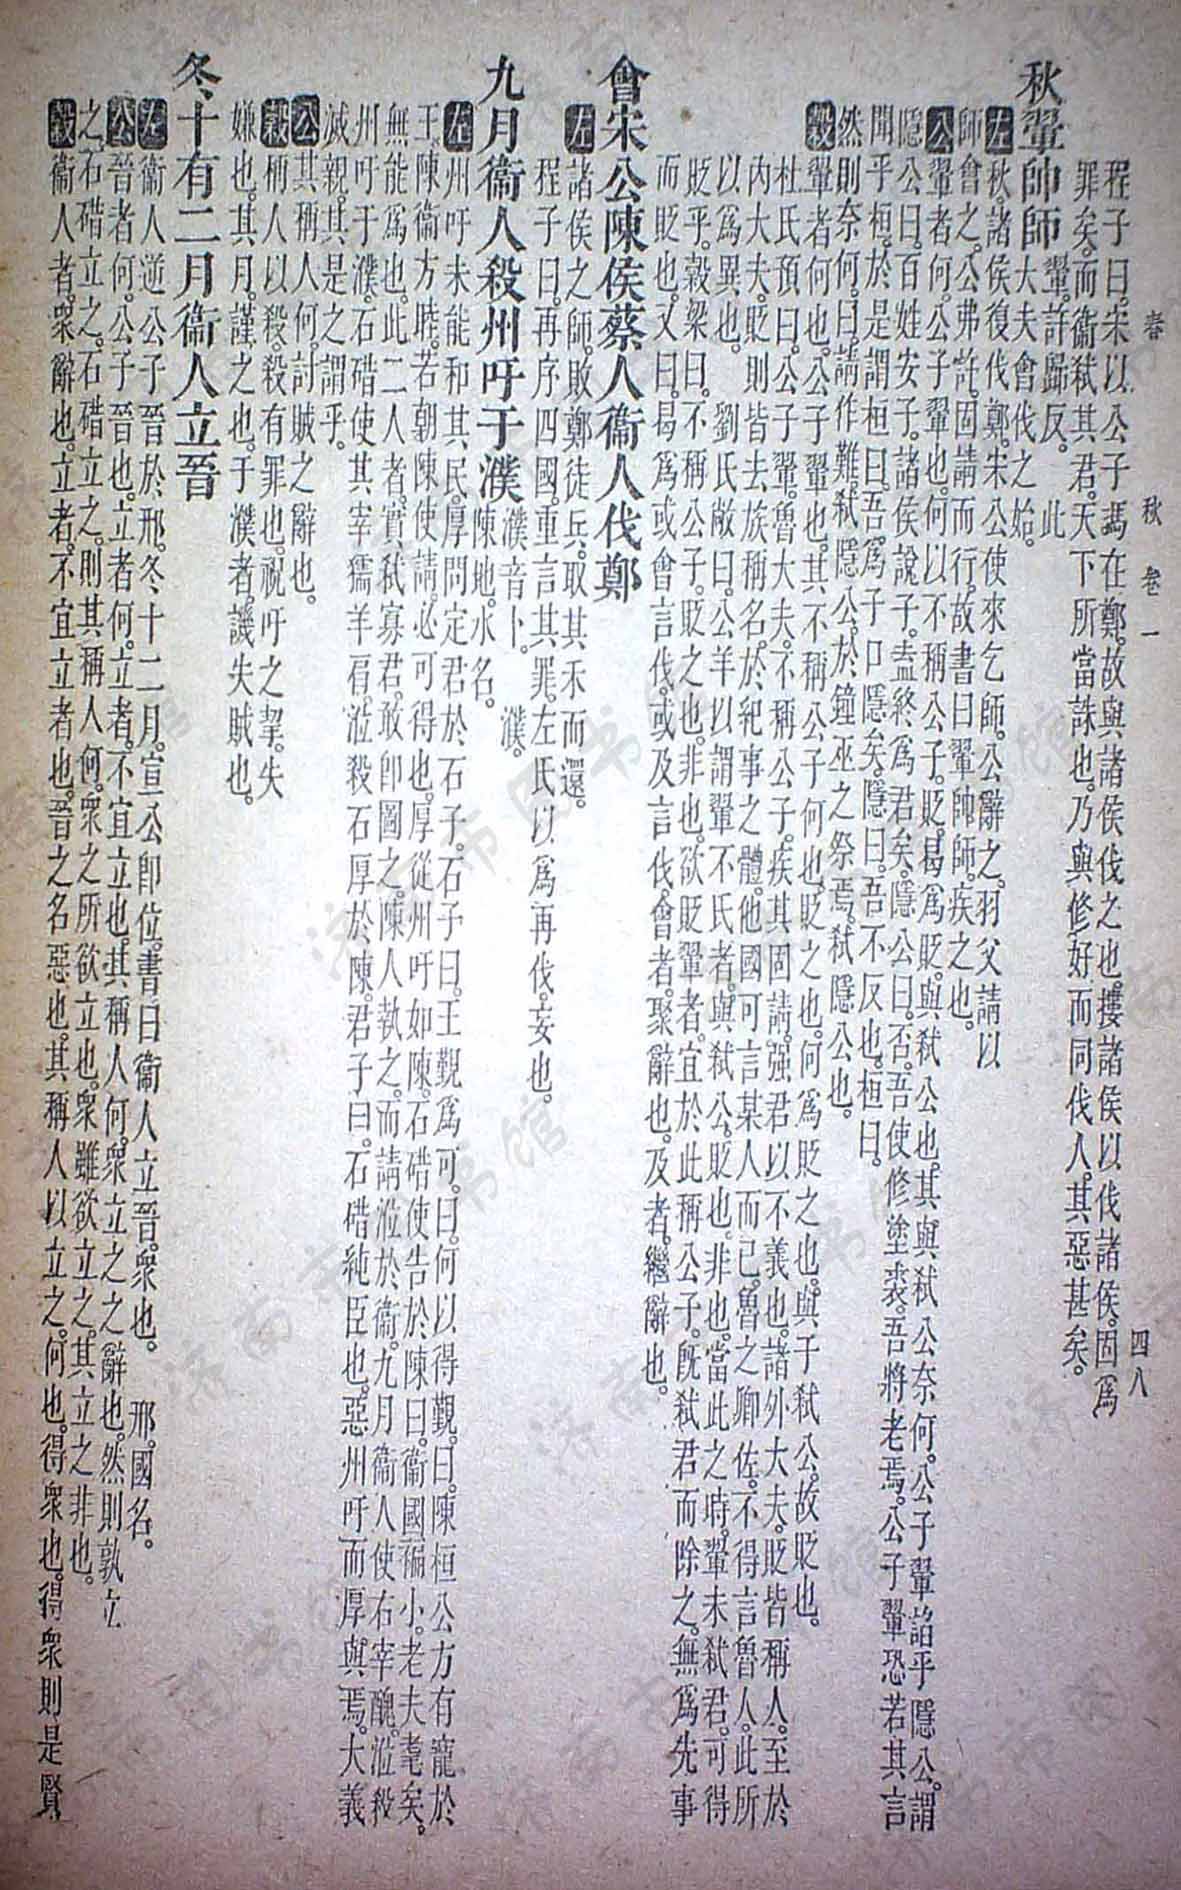 春秋 卷一 四八
程子曰。宋以公子馮在鄭。故與諸侯伐之也。摟諸侯以伐諸侯。固爲
罪矣。而衞弑其君。天下所當誅也。乃與修好而同伐人。其惡甚矣。
秋翬帥師 翬。許歸反。此大夫會伐之始。
左 秋。諸侯復伐鄭。宋公使來乞師。公辭之。羽父請以
師會之。公弗許。固請而行。故書曰翬帥師。疾之也。
公 翬者何。公子翬也。何以不稱公子。貶。曷爲貶。與弑公也。其與弑公奈何。公子翬諂乎隱公。謂
隱公曰。百姓安子。諸侯說子。盍終爲君矣。隱公曰。否。吾使修塗裘。吾將老焉。公子翬恐若其言
聞乎桓。於是謂桓曰。吾爲子口隱矣。隱曰。吾不反也。桓曰。
然則奈何。曰。請作難。弑隱公。於鐘巫之祭焉。弑隱公也。
穀 翬者何也。公子翬也。其不稱公子何也。貶之也。何爲貶之也。與于弑公。故貶也。
杜氏預曰。公子翬。魯大夫。不稱公子。疾其固請。强君以不義也。諸外大夫。貶皆稱人。至於
內大夫。貶則皆去族稱名。於紀事之體。他國可言某人而已。魯之卿佐。不得言魯人。此所
以爲異也。 劉氏敞曰。公羊以謂翬不氏者。與弑公。貶也。非也。當此之時。翬未弑君。可得
貶乎。穀梁曰。不稱公子。貶之也。非也。欲貶翬者。宜於此稱公子。旣弑君而除之。無爲先事
而貶也。又曰。曷爲或會言伐。或及言伐。會者。聚辭也。及者。繼辭也。
會宋公陳侯蔡人衞人伐鄭
左 諸侯之師。敗鄭徒兵。取其禾而還。
程子曰。再序四國。重言其罪。左氏以爲再伐。妄也。
九月衞人殺州吁于濮 濮音卜。濮。陳地。水名。
左 州吁未能和其民。厚問定君於石子。石子曰。王覲爲可。曰。何以得覲。曰。陳桓公方有寵於
王。陳衞方睦。若朝陳使請。必可得也。厚從州吁如陳。石碏使告於陳曰。衞國褊小。老夫耄矣。
無能爲也。此二人者。實弑寡君。敢卽圖之。陳人執之。而請涖於衞。九月衞人使右宰醜。涖殺
州吁于濮。石碏使其宰獳羊肩。涖殺石厚於陳。君子曰。石碏純臣也。惡州吁而厚與焉。大義
滅親。其是之謂乎。
公 其稱人何。討賊之辭也。
穀 稱人以殺。殺有罪也。祝吁之挈。失
嫌也。其月。謹之也。于濮者譏失賊也。
冬十有二月衞人立晉
左 衞人逆公子晉於邢。冬十二月。宣公卽位。書曰衞人立晉。衆也。 邢。國名。
公 晉者何。公子晉也。立者何。立者。不宜立也。其稱人何。衆立之之辭也。然則孰立
之。石碏立之。石碏立之。則其稱人何。衆之所欲立也。衆雖欲立之。其立之非也。
穀 衞人者。衆辭也。立者。不宜立者也。晉之名惡也。其稱人以立之。何也。得衆也。得衆則是賢